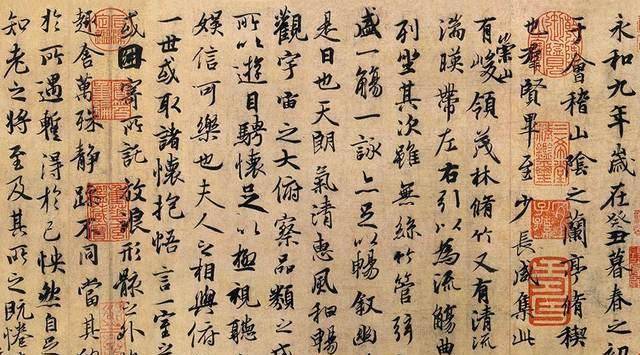 永和九年歲在癸丑暮春之初
于會稽山陰之蘭亭脩稧
也羣賢畢至少長咸集此
有崇山峻領茂林脩竹又有清流
湍暎帶左右引以為流觴曲
列坐其次雖無絲竹管弦
盛一觴一詠亦足以暢叙幽
是日也天朗氣清惠風和暢
觀宇宙之大俯察品類之
所以遊目騁懷足以極視聽
娛信可樂也夫人之相與俯
一世或取諸懷抱悟言一室之
或因寄所託放浪形骸之外
趣舍萬殊靜躁不同當其
於所遇暫得於己怏然自足
知老之將至及其所之既惓